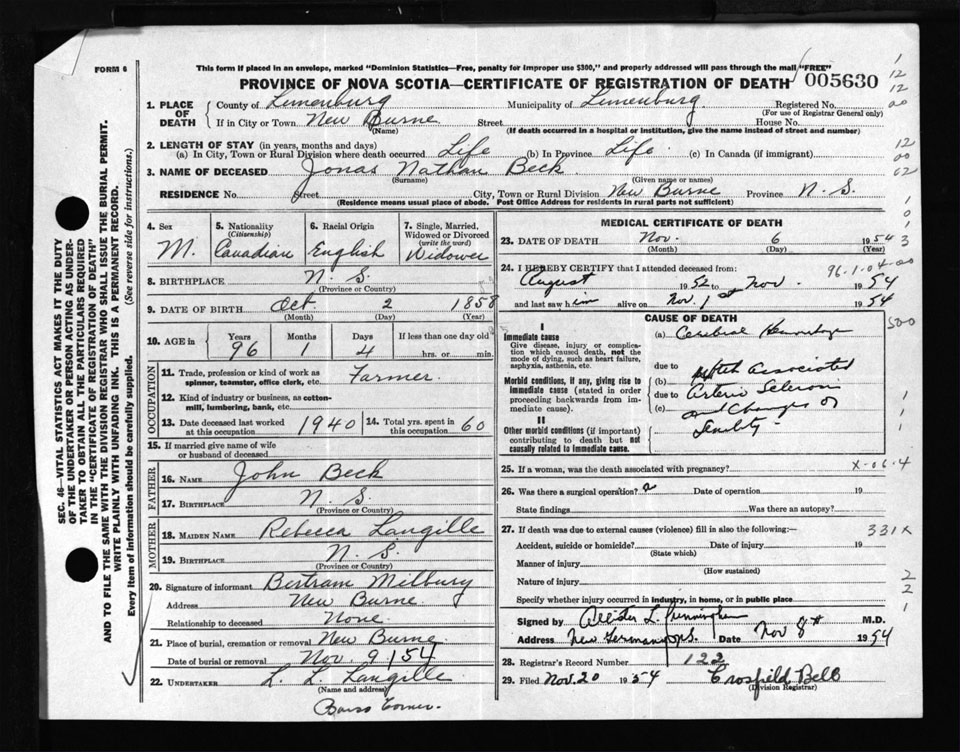 FORM 6
This form if placed in an envelope, marked "Dominion Statistics—Free, penalty for improper use $300," and properly addressed will pass through the mail "FREE"
PROVINCE OF NOVA SCOTIA—CERTIFICATE OF REGISTRATION OF DEATH 005630
1. PLACE OF DEATH
County of Lunenburg Municipality of Lunenburg Registered No.
(For use of Registrar General only)
If in City or Town New Burne Street House No.
(Name) (If death occurred in a hospital or institution, give the name instead of street and number)
2. LENGTH OF STAY (in years, months and days)
(a) In City, Town or Rural Division where death occurred Life (b) In Province Life (c) In Canada (if immigrant)
3. NAME OF DECEASED Jonas Nathan Beck
(Surname) (Given name or names)
RESIDENCE No. Street City, Town or Rural Division New Burne Province N. S.
(Residence means usual place of abode. Post Office Address for residents in rural parts not sufficient)
4. Sex
M.
5. Nationality (Citizenship)
Canadian
6. Racial Origin
English
7. Single, Married, Widowed or Divorced (write the word)
Widower
8. BIRTHPLACE N. S.
(Province or Country)
9. DATE OF BIRTH Oct 2 1858
(Month) (Day) (Year)
10. AGE in Years Months Days If less than one day old
96 1 4 hrs. or min.
OCCUPATION
11. Trade, profession or kind of work as spinner, teamster, office clerk, etc. Farmer.
12. Kind of industry or business, as cotton-mill, lumbering, bank, etc.
13. Date deceased last worked at this occupation 1940
14. Total yrs. spent in this occupation 60
15. If married give name of wife or husband of deceased
FATHER
16. NAME John Beck
17. BIRTHPLACE N. S.
(Province or Country)
MOTHER
18. MAIDEN NAME Rebecca Langille
19. BIRTHPLACE N. S.
(Province or Country)
20. Signature of informant Bertram Milbury
Address New Burne
Relationship to deceased None.
21. Place of burial, cremation or removal New Burne
Date of burial or removal Nov. 9/54
22. UNDERTAKER L. L. Langille
(Name and address)
Corner.
MEDICAL CERTIFICATE OF DEATH
23. DATE OF DEATH Nov. 6 1954
(Month) (Day) (Year)
24. I HEREBY CERTIFY that I attended deceased from:
96-1-04-00
August 1952 to Nov. 1954
and last saw him alive on Nov. 1st 1954
CAUSE OF DEATH
I
Immediate cause
Give disease, injury or complication which caused death, not the mode of dying, such as heart failure, asphyxia, asthenia, etc.
(a) Cerebral Hemorrhage
due to
Morbid conditions, if any, giving rise to immediate cause (stated in order proceeding backwards from immediate cause).
(b) Associated
due to Arterio Sclerosis
(c) and Changes of
Senility
II
Other morbid conditions (if important) contributing to death but not causally related to immediate cause.
25. If a woman, was the death associated with pregnancy? X-06-4
26. Was there a surgical operation? Date of operation 19
State findings Was there an autopsy?
27. If death was due to external causes (violence) fill in also the following:— 331X
Accident, suicide or homicide? Date of injury 19
(State which)
Manner of injury
(How sustained)
Nature of injury
Specify whether injury occurred in industry, in home, or in public place
Signed by L. Cunningham M.D.
Address New Germany N.S. Date Nov 8th 1954
28. Registrar's Record Number 122
29. Filed Nov. 20 1954 Crosfield Bell
(Division Registrar)
SEC. 46—VITAL STATISTICS ACT MAKES IT THE DUTY
OF THE UNDERTAKER OR PERSON ACTING AS UNDER-
TAKER TO OBTAIN ALL THE PARTICULARS REQUIRED
IN THE "CERTIFICATE OF REGISTRATION OF DEATH"
AND TO FILE THE SAME WITH THE DIVISION REGISTRAR WHO SHALL ISSUE THE BURIAL PERMIT.
WRITE PLAINLY WITH UNFADING INK. THIS IS A PERMANENT RECORD.
Every item of information should be carefully supplied. (See reverse side for instructions.)
1
12
12
00
12
00
02
1
0
1
3
500
1
1
1
2
2
1